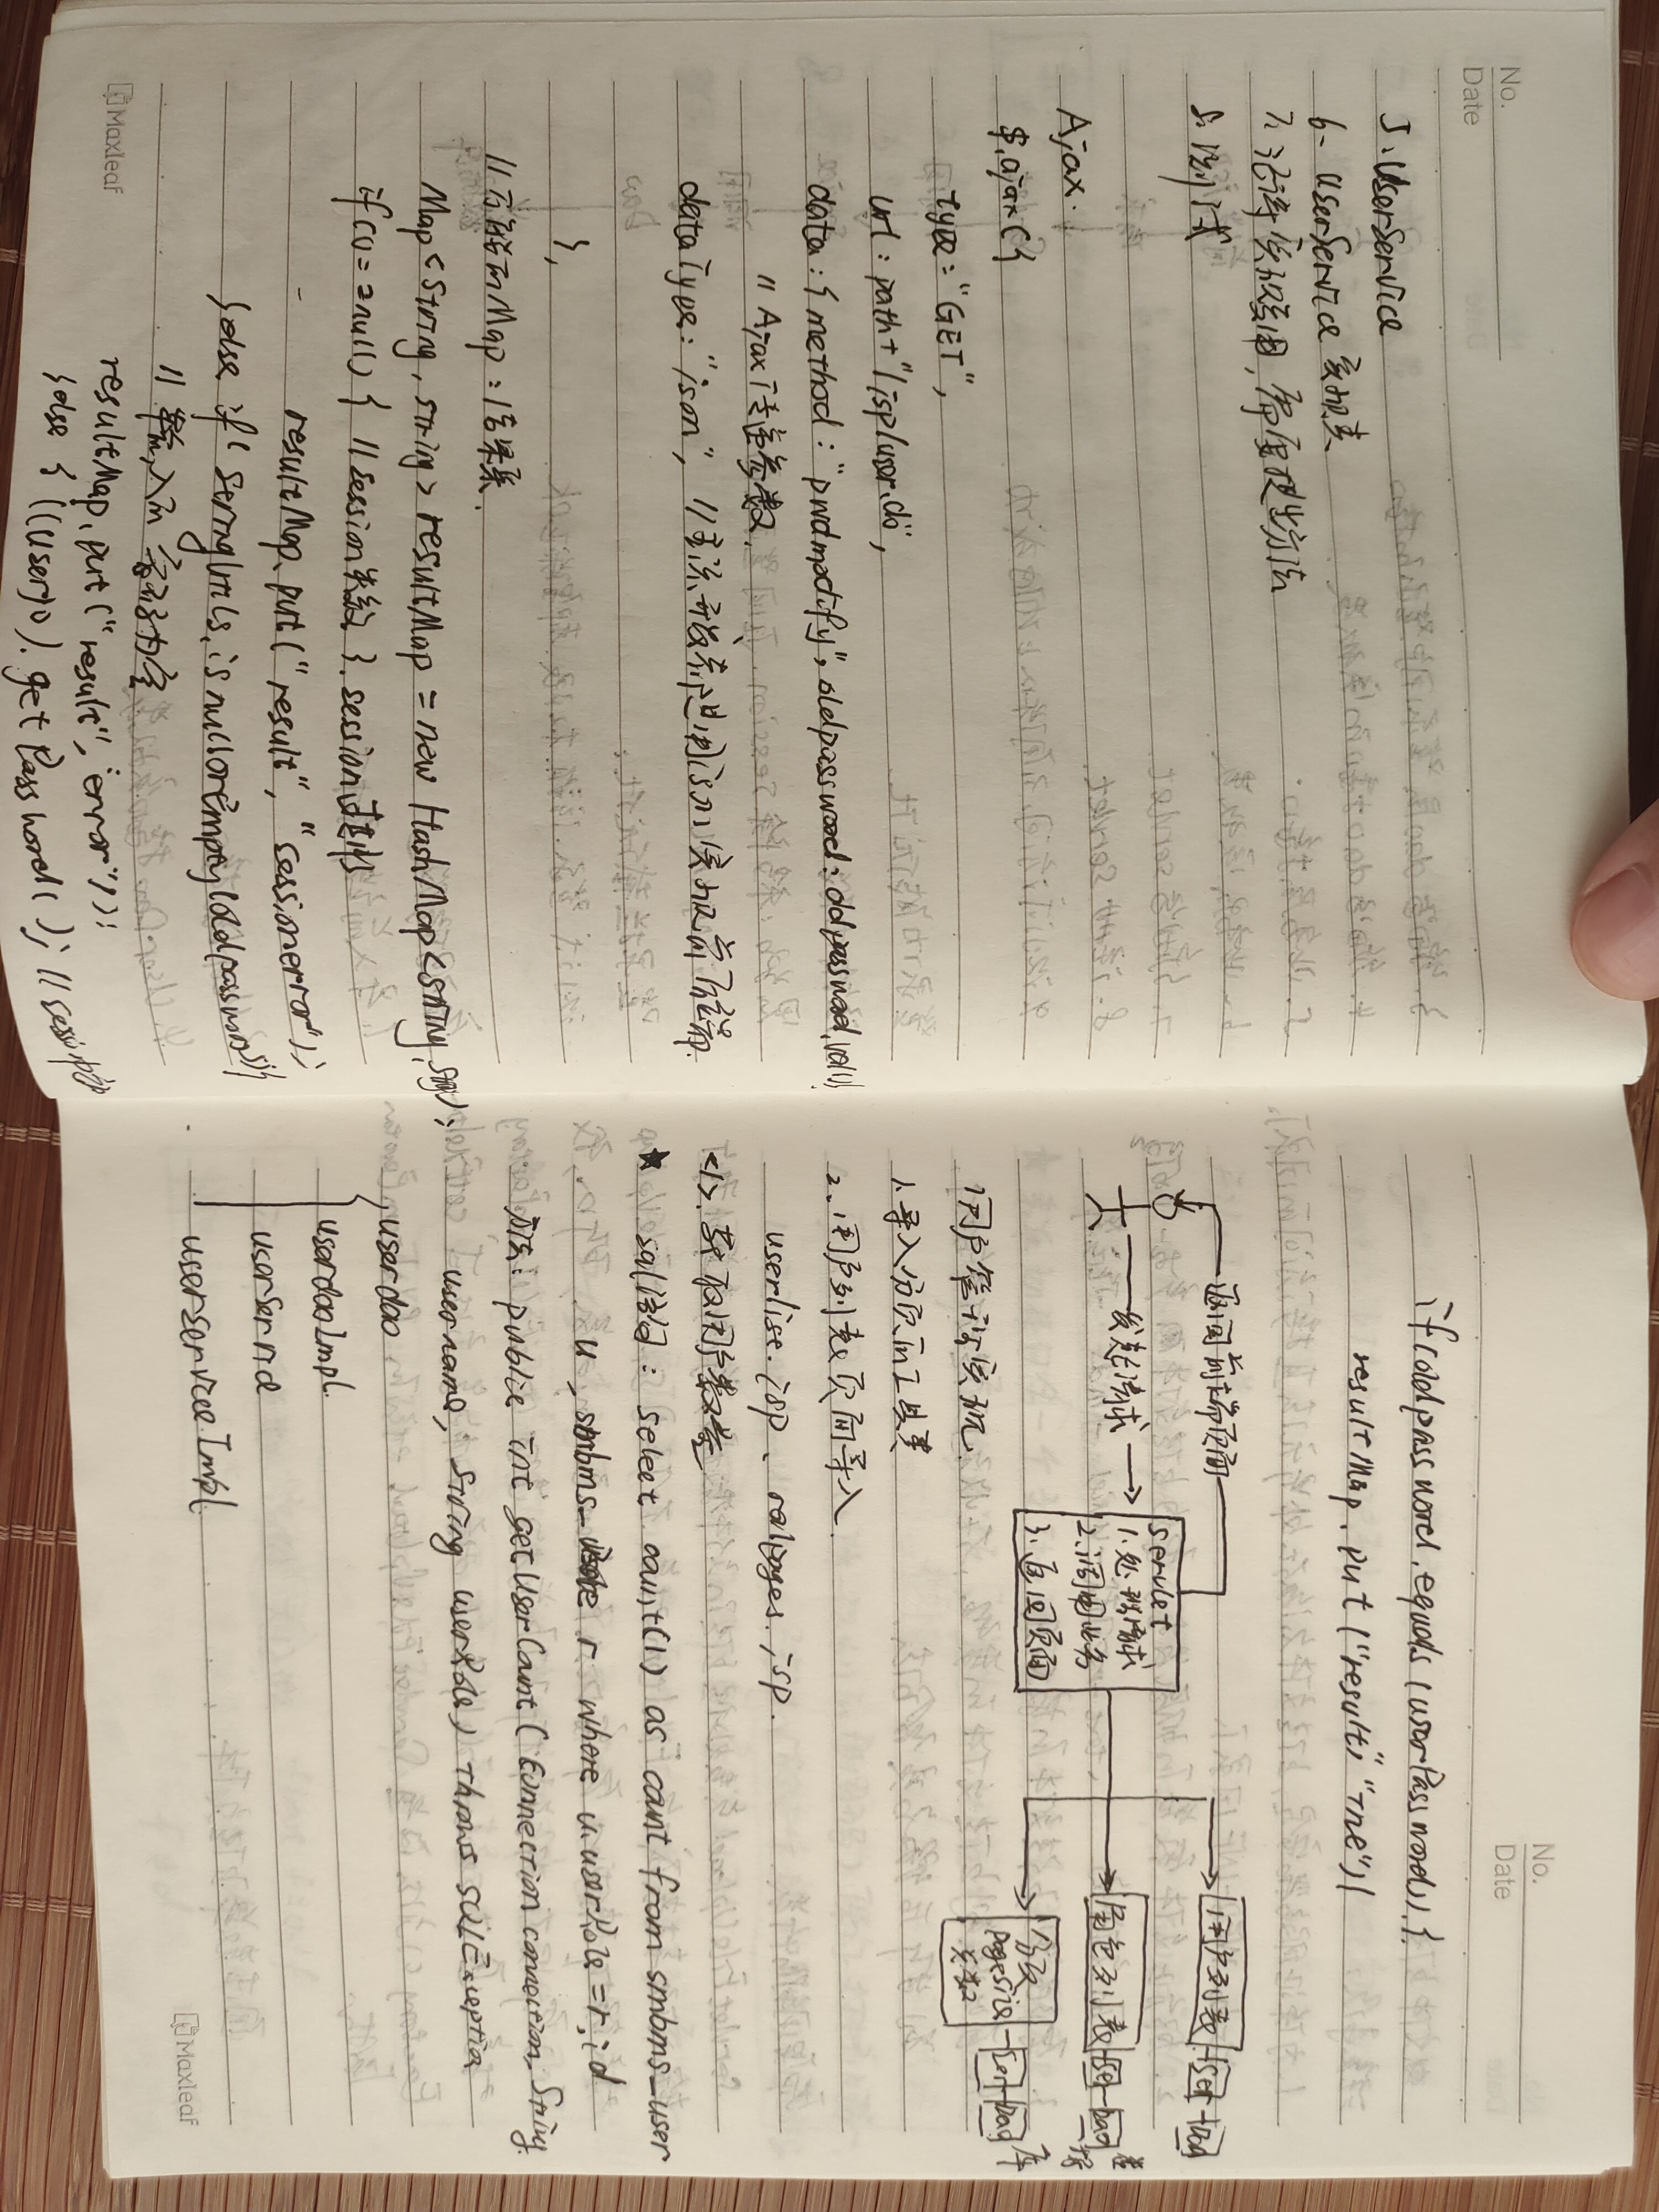 No.
Date
5、UserService
6、UserService 实现类
7、记得实现复用,需要提出方法
8、测试
Ajax.
$.ajax({
type:"GET",
url:path+"/jsp/user.do",
data:{method:"pwdmodify",oldpassword:oldpassword.val()}
// Ajax传递参数.
dataType:"json", //主流开发都是用json实现前后端
},
//万能的Map:结果集.
Map<String,string> resultMap = new HashMap<string,string>();
if(o==null){ //session失效了,session过期
resultMap.put("result","sessionerror");
}else if(StringUtils.isnullorEmpty(oldpassword)){
//输入的密码为空
resultMap.put("result","error"));
}else {((User)o).getPassword(); //session中
Maxleaf
No.
Date
if(oldpassword.equals(userPassword)){
resultMap.put("result","true")
返回前端页面
发起请求
servlet
1.处理请求
2.调用业务
3.返回页面
用户列表 ser Dao
角色列表 ser Dao
分页 ser Dao
pageSize
总数
数据库
用户管理实现
1、导入分页的工具类
2、用户列表页面导入
userlist.jsp、rollpages.jsp.
<1>. 获取用户数量
★ sql语句:select count(1) as count from smbms_user
u,smbms_role r where u.userRole=r.id
方法:public int getUserCount(Connection connection,String
username,String userRole) throws SQLException
userdao
userdaoImpl.
userService
userServiceImpl.
Maxleaf